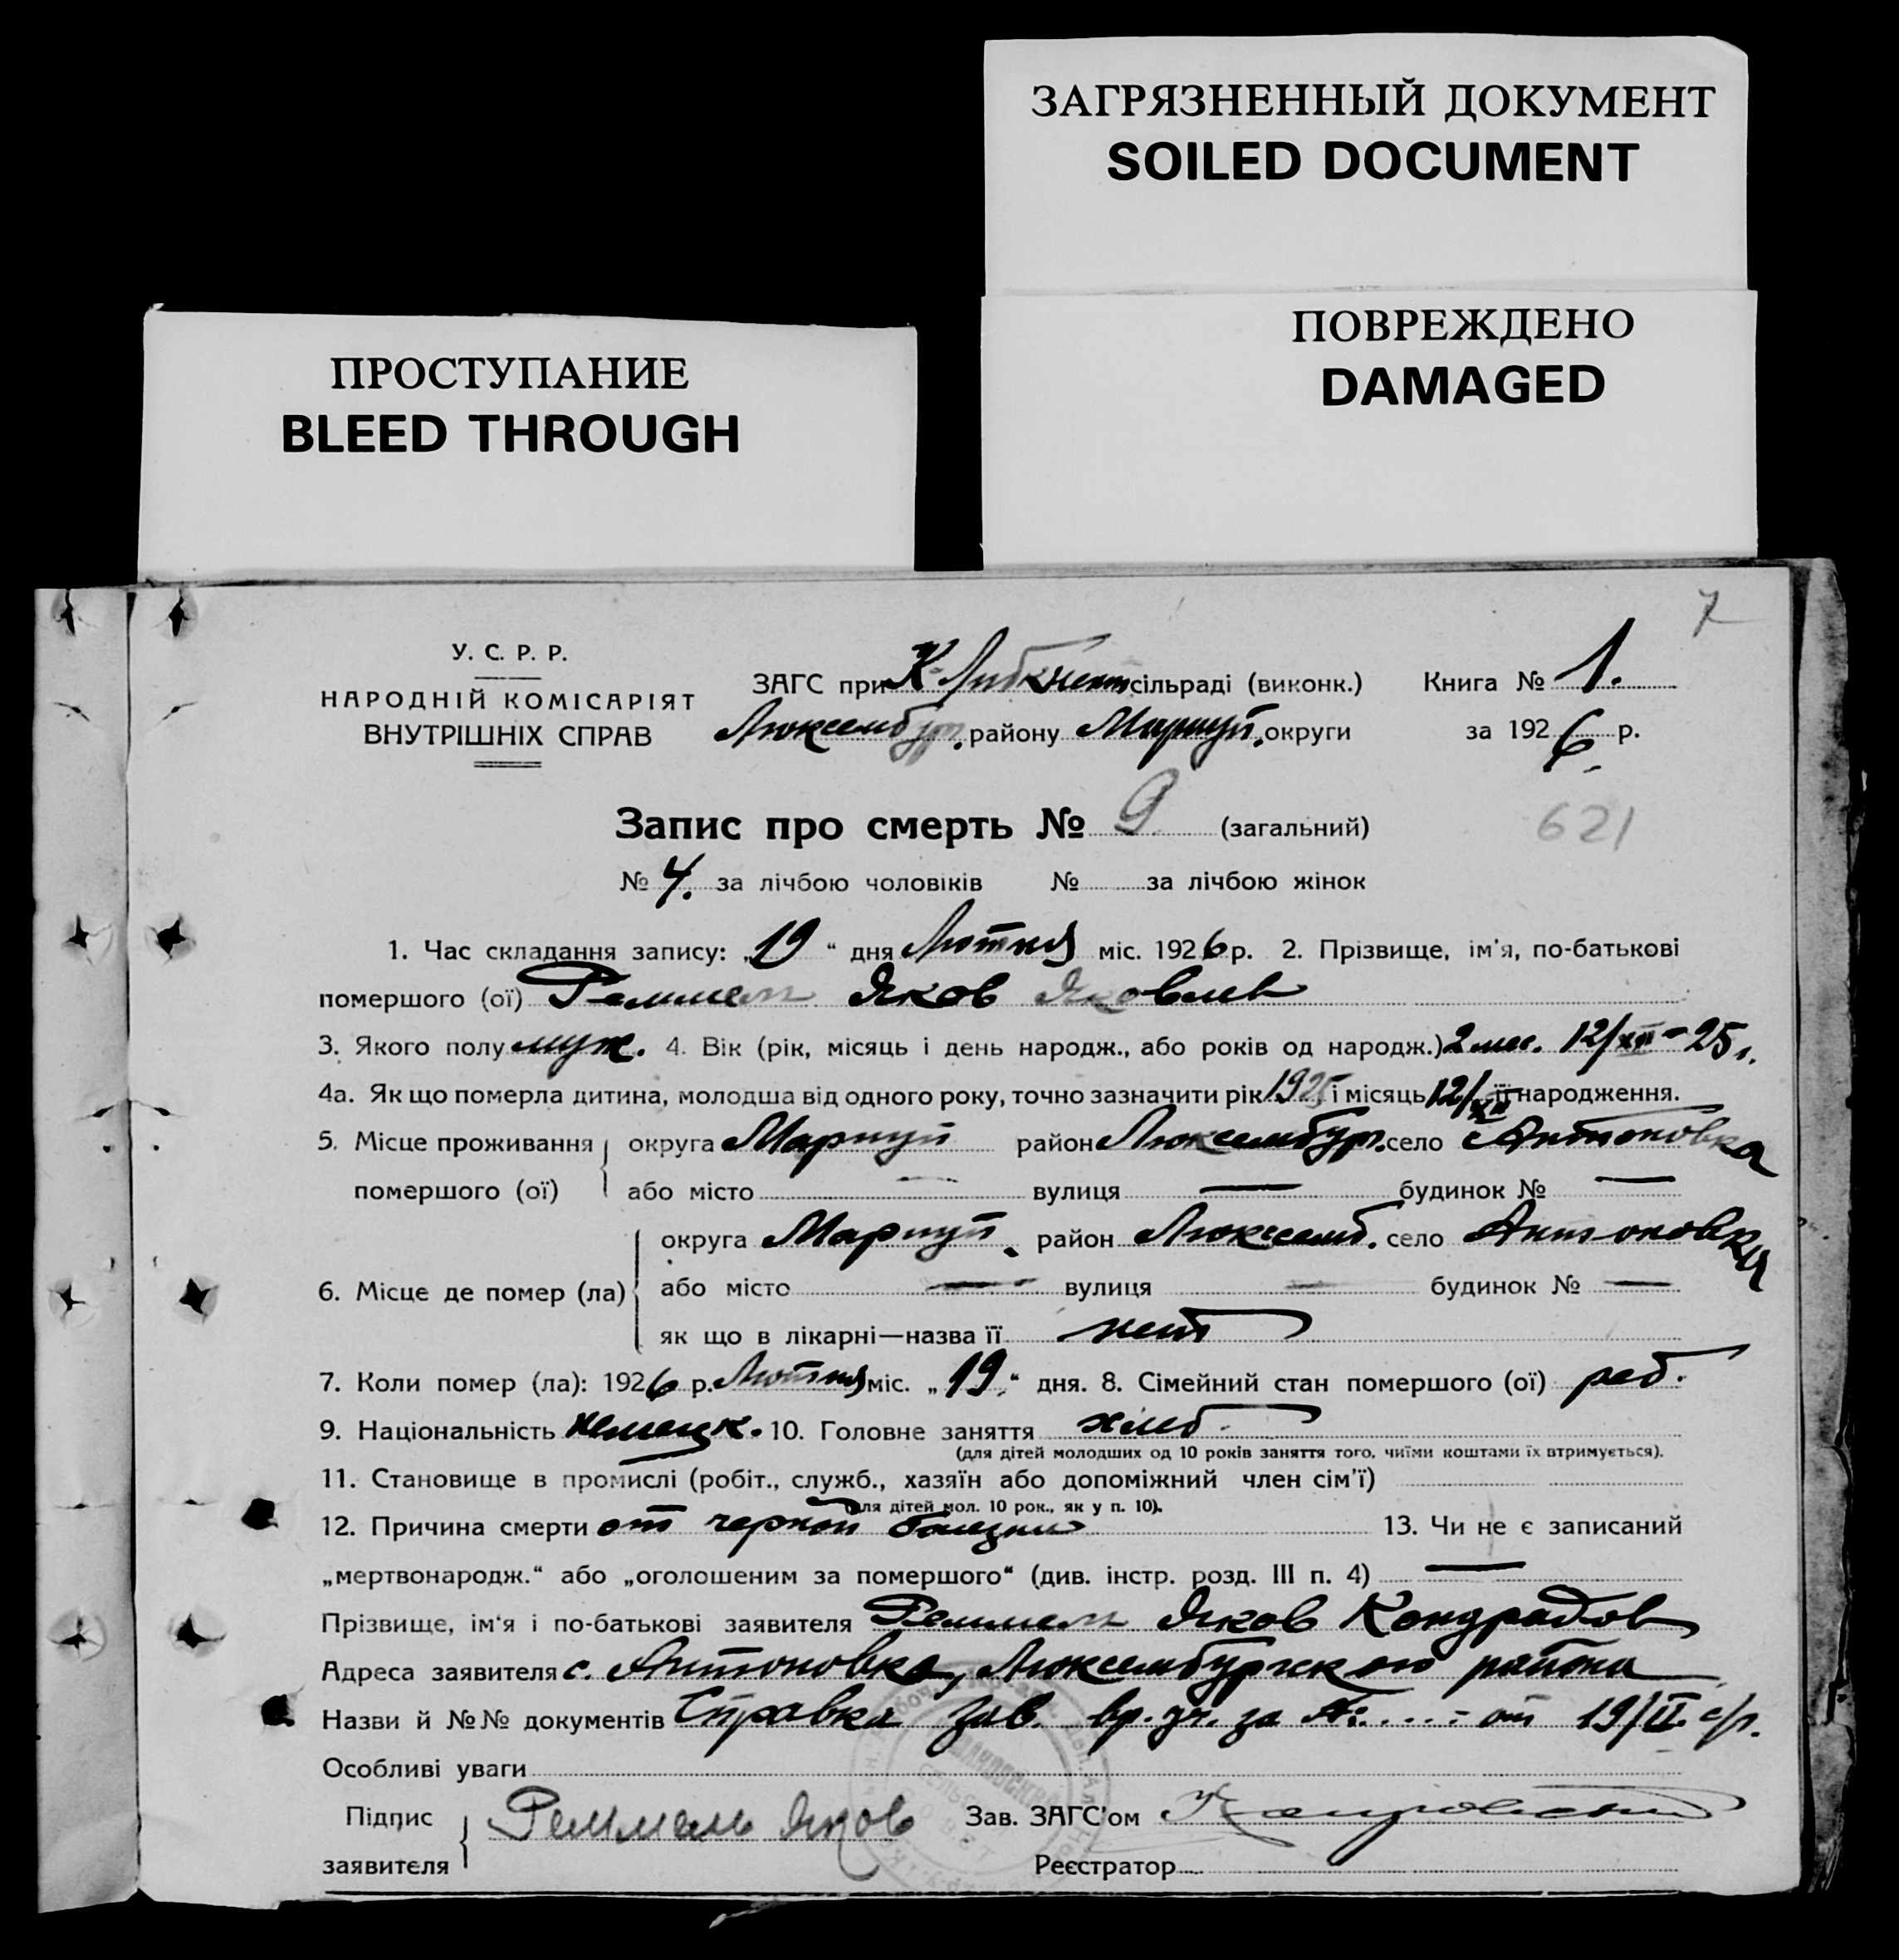 ЗАГРЯЗНЕННЫЙ ДОКУМЕНТ
SOILED DOCUMENT
ПОВРЕЖДЕНО
DAMAGED
ПРОСТУПАНИЕ
BLEED THROUGH
7
У. С. Р. Р.
НАРОДНІЙ КОМІСАРІЯТ
ВНУТРІШНІХ СПРАВ
ЗАГС при К-Либкнехт сільраді (виконк.) Книга № 1.
Люксембур. району Маріуп. округи за 1926 р.
Запис про смерть № 9 (загальний)
621
№ 4. за лічбою чоловіків № за лічбою жінок
1. Час складання запису: „19“ дня Лютня міс. 1926 р. 2. Прізвище, ім'я, по-батькові
помершого (ої) Реммель Яков Яковлев
3. Якого полу муж. 4. Вік (рік, місяць і день народж., або років од народж.) 2 мес. 12/XII-25 г.
4а. Як що померла дитина, молодша від одного року, точно зазначити рік 1925 і місяць 12/XII її народження.
5. Місце проживання округа Мариуп район Люксембур. село Антоновка
помершого (ої) або місто — вулиця — будинок № —
округа Мариуп. район Люксемб. село Антоновка
6. Місце де помер (ла) або місто — вулиця — будинок № —
як що в лікарні—назва її нет
7. Коли помер (ла): 1926 р. Лютня міс. „19“ дня. 8. Сімейний стан помершого (ої) реб.
9. Національність немецк. 10. Головне заняття хлеб.
(для дітей молодших од 10 років заняття того, чиїми коштами їх втримується).
11. Становище в промислі (робіт., служб., хазяїн або допоміжний член сім'ї)
(для дітей мол. 10 рок., як у п. 10).
12. Причина смерти от черной болезни 13. Чи не є записаний
„мертвонародж.“ або „оголошеним за помершого“ (див. інстр. розд. III п. 4) —
Прізвище, ім'я і по-батькові заявителя Реммель Яков Кондратов
Адреса заявителя с. Антоновка, Люксембургского района
Назви й №№ документів Справка зав. вр. уч. за №....- от 19/II с/г.
Особливі уваги
Підпис заявителя Реммель Яков Зав. ЗАГС'ом
Реєстратор